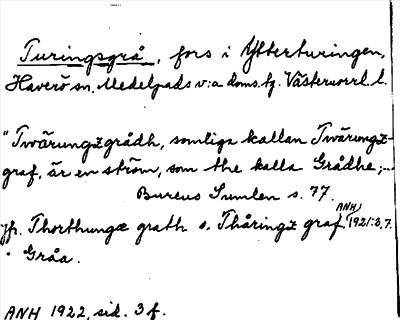 Turingsgrå, fors i Ytterturingen,
Haverö sn, Medelpads v:a doms. tg. Västernorrl. l.
"Twärungzgrådh, somlige kallan Twärungz-
graf, är en ström, som the kalla Grådhe;...
Bureus Sumlen s. 77.
Jfr. Thorthungæ grath o. Thåringz graf ANH 1921:3,7.
" Gråa.
ANH 1922, sid. 3 f.